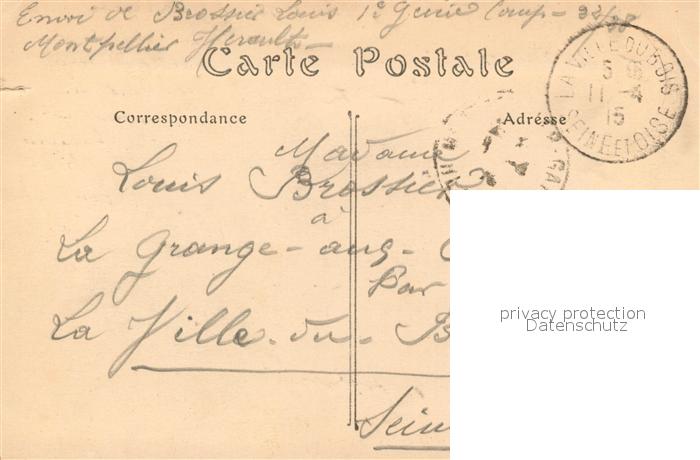 Envoi de Brossier Louis 1e Genie Comp - 32/38
Montpellier Herault -
Carte Postale
LA VILLE DU BOIS
5
11 - 4
15
SEINE ET OISE
Correspondance
Adresse
GAR
Madame
Louis Brossier
à
La Grange-aux-
Par
La Ville-du-B
Sein
privacy protection
Datenschutz